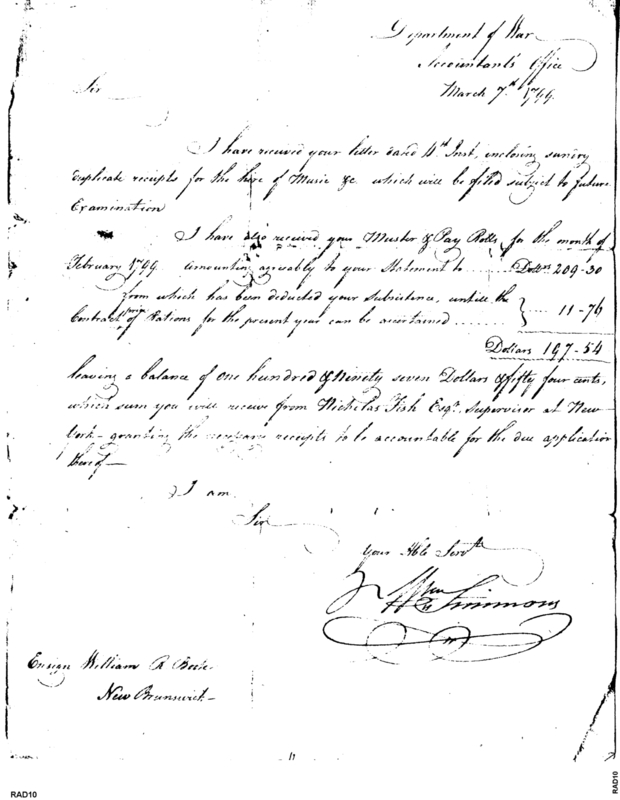 Department of War
Accountants Office
March 7th 1799.
Sir
I have received your letter dated 4th Inst, inclosing sundry
duplicate receipts for the hire of Music &c which will be filed subject to future
Examination
I have also received your Muster & Pay Rolls, for the month of
February 1799 amounting agreeably to your Statement to ...... Dollars 209-30
from which has been deducted your subsistence, untill the
Contract price of Rations for the present year can be ascertained ........ } .... 11-76
Dollars 197-54
leaving a balance of one hundred & Ninety seven Dollars & fifty four cents,
which sum you will receive from Nicholas Fish Esqr. Supervisor at New
York - granting the necessary receipts to be accountable for the due application
thereof —
I am
Sir
Your Hble Servt
Wm Simmons
Ensign William R
New Brunswick —
RAD10
RAD10